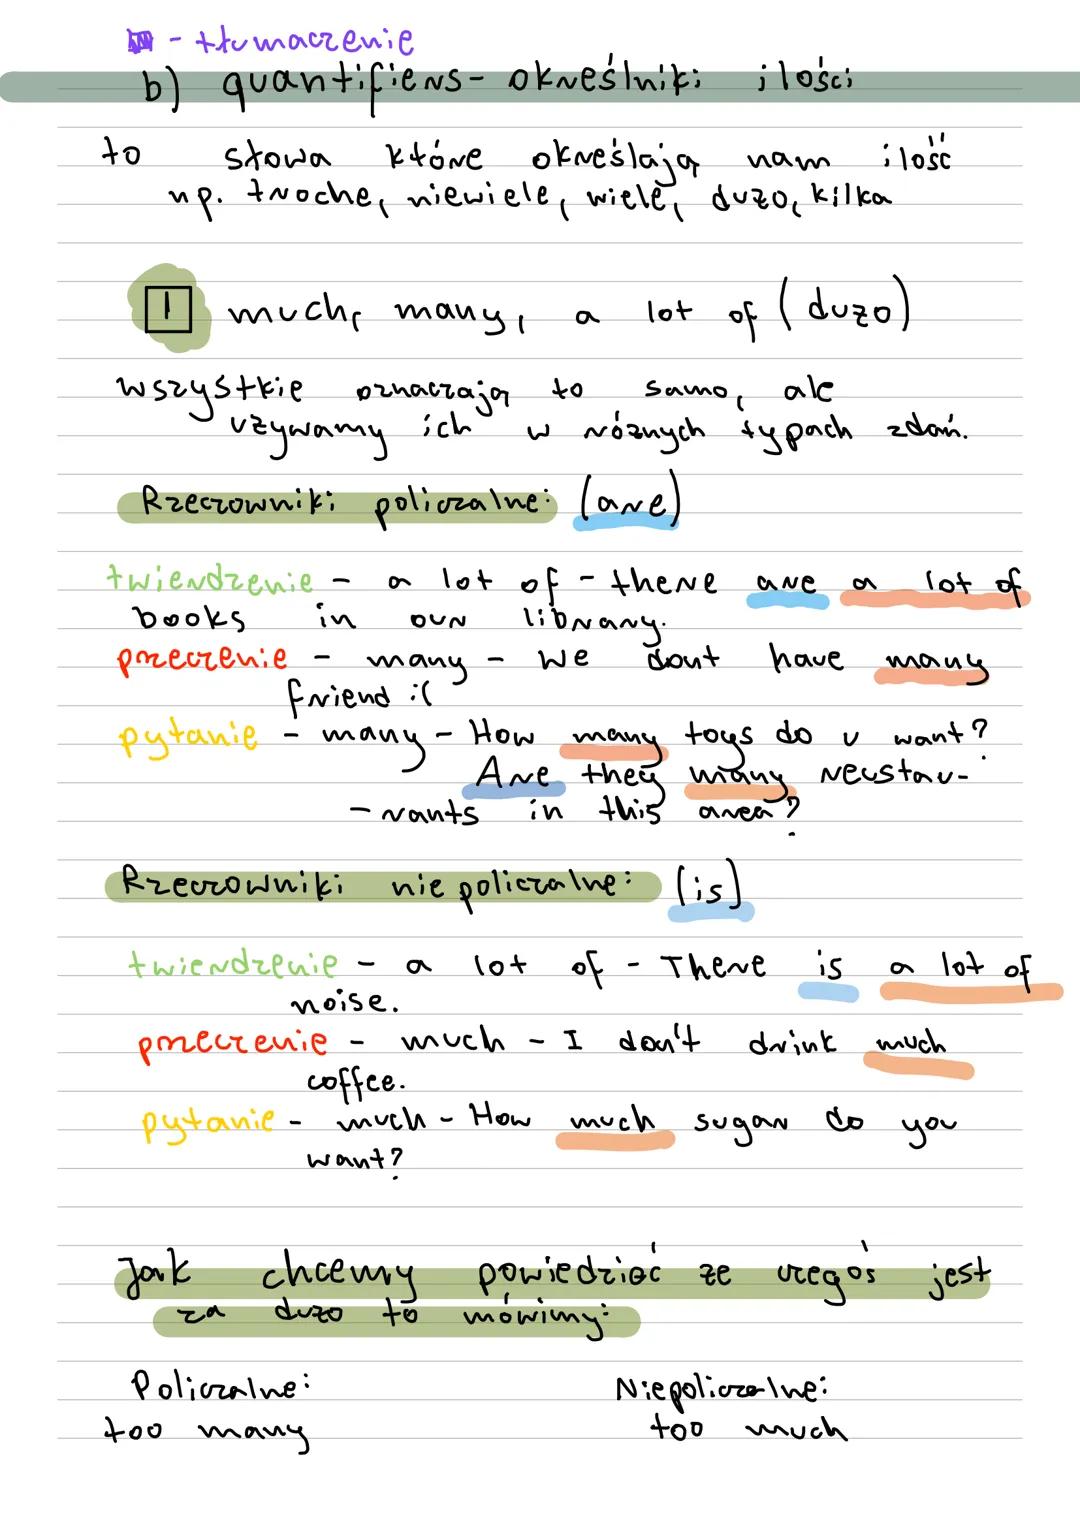 - tłumaczenie
b) quantifiers - określniki ilości
to słowa które określają nam ilość
np. troche, niewiele, wiele, dużo, kilka
1 much, many, a lot of (dużo)
wszystkie oznaczają to samo, ale
używamy ich w różnych typach zdań.
Rzeczowniki policzalne: (are)
twierdzenie - a lot of - there are a lot of
books in our library.
przeczenie - many - We dont have many
friend :(
pytanie - many - How many toys do u want?
Are they many restau-
-rants in this area?
Rzeczowniki nie policzalne: (is)
twierdzenie - a lot of - There is a lot of
noise.
przeczenie - much - I don't drink much
coffee.
pytanie - much - How much sugar do you
want?
Jak chcemy powiedzieć ze czegoś jest
za duzo to mówimy:
Policzalne: Niepoliczalne:
too many too much